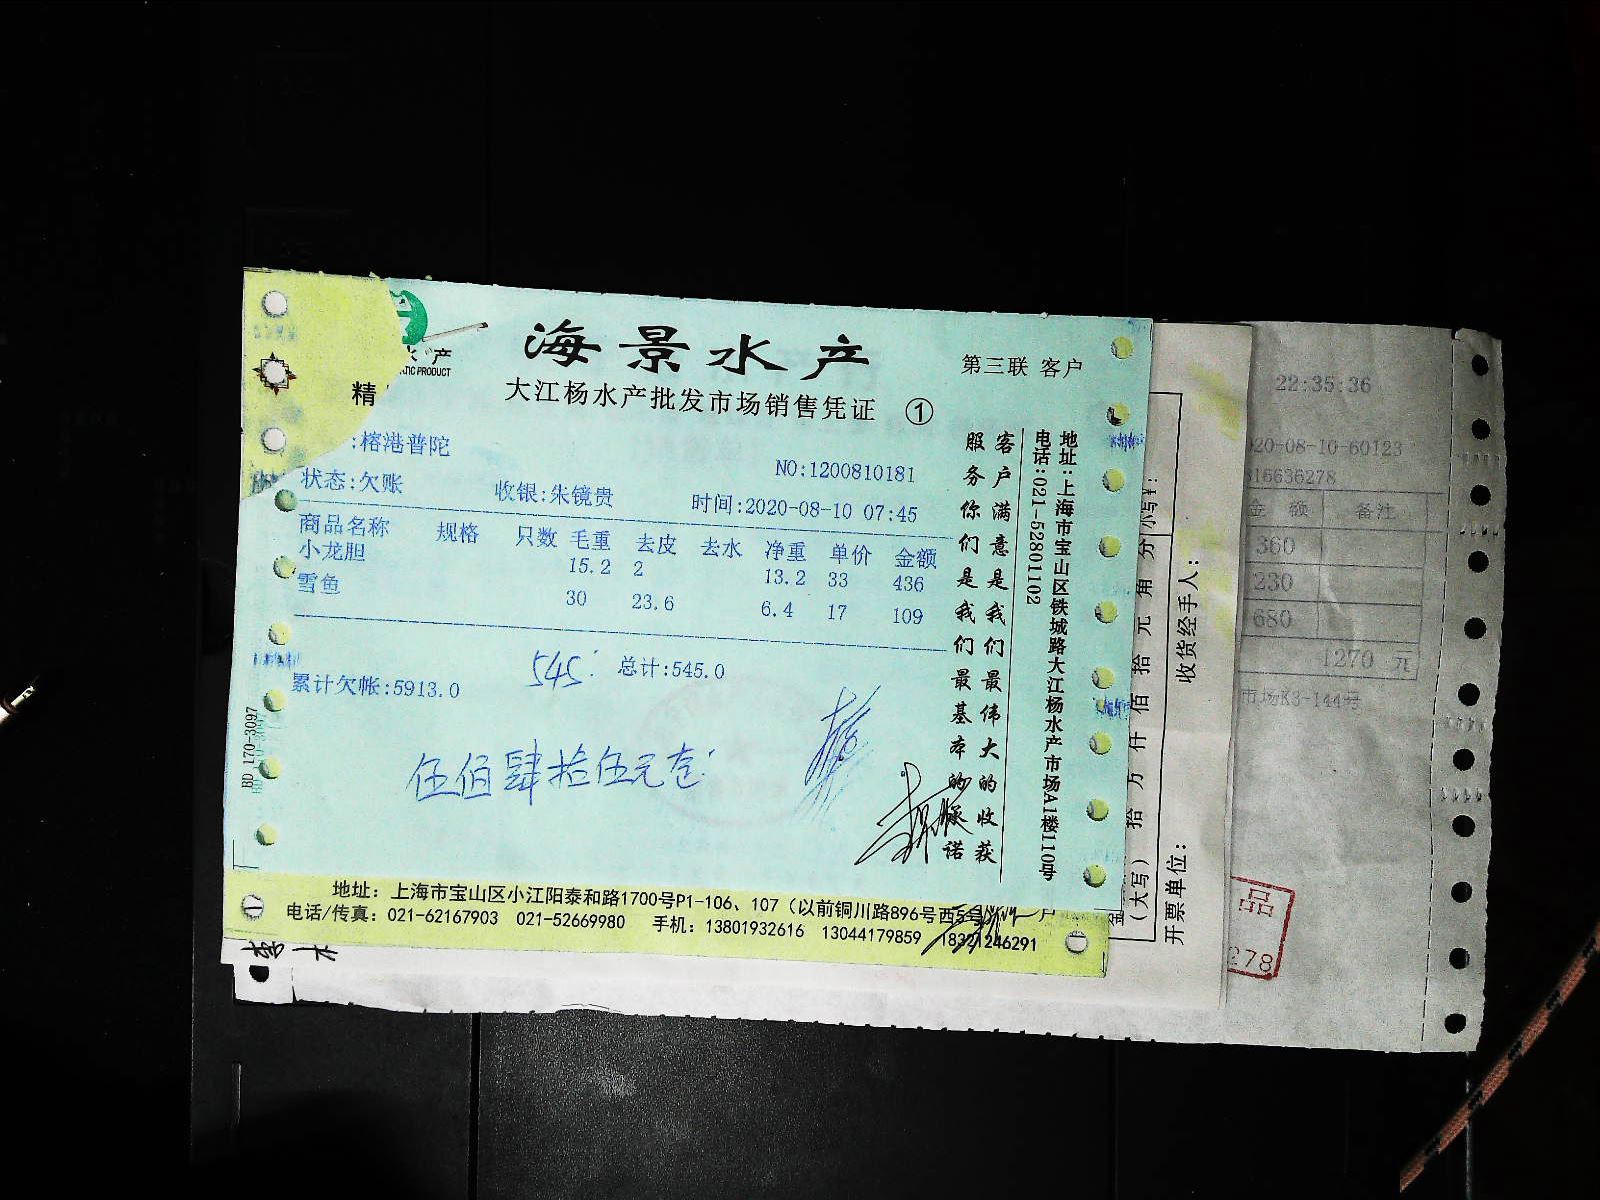 海景水产
第三联 客户
水产
TIC PRODUCT
精
大江杨水产批发市场销售凭证 ①
:榕港普陀
NO:1200810181
状态:欠账 收银:朱镜贵 时间:2020-08-10 07:45
商品名称 规格 只数 毛重 去皮 去水 净重 单价 金额
小龙胆 15.2 2 13.2 33 436
雪鱼 30 23.6 6.4 17 109
545 总计:545.0
累计欠帐:5913.0
伍佰肆拾伍元
客户满意是我们最伟大的收获
服务你们是我们最基本的承诺
地址:上海市宝山区铁城路大江杨水产市场A1楼110号
电话:021-52801102
BD 170-3097
地址: 上海市宝山区小江阳泰和路1700号P1-106、107 (以前铜川路896号西5号
电话/传真: 021-62167903 021-52669980 手机: 13801932616 13044179859 18321246291
小写¥:
(大写) 拾 万 仟 佰 拾 元 角 分
收货经手人:
开票单位:
22:35:36
020-08-10-60123
816636278
金 额 备注
360
230
680
1270 元
市场K3-144号
品
278